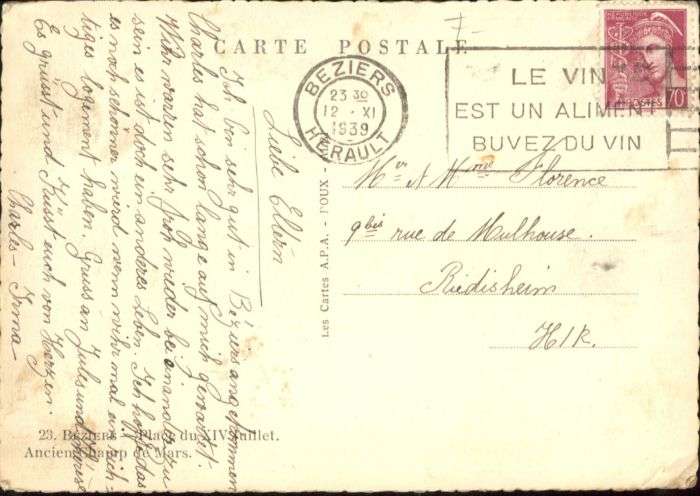 CARTE POSTALE
BEZIERS
23 30
12 - XI
1939
HERAULT
LE VIN
EST UN ALIMENT
BUVEZ DU VIN
POSTES
70
Mr et Mme Florence
9bis rue de Mulhouse.
Riedisheim
H/R.
Les Cartes A.P.A. - POUX -
Liebe Eltern
Ich bin sehr gut in Béziers angekommen
Charles hat schon lange auf mich gewartet.
Wihr waren sehr froh wieder bei einander zu
sein es ist doch ein anderes leben. Ich hoffe das
es noch schönner werd wenn wihr mal ein rich-
tiges logement haben. Gruss an Jules und Therese
Es grüsst und Küsst euch von Herzen.
Charles - Irma
23. BÉZIERS - Place du XIV Juillet.
Ancien Champ de Mars.